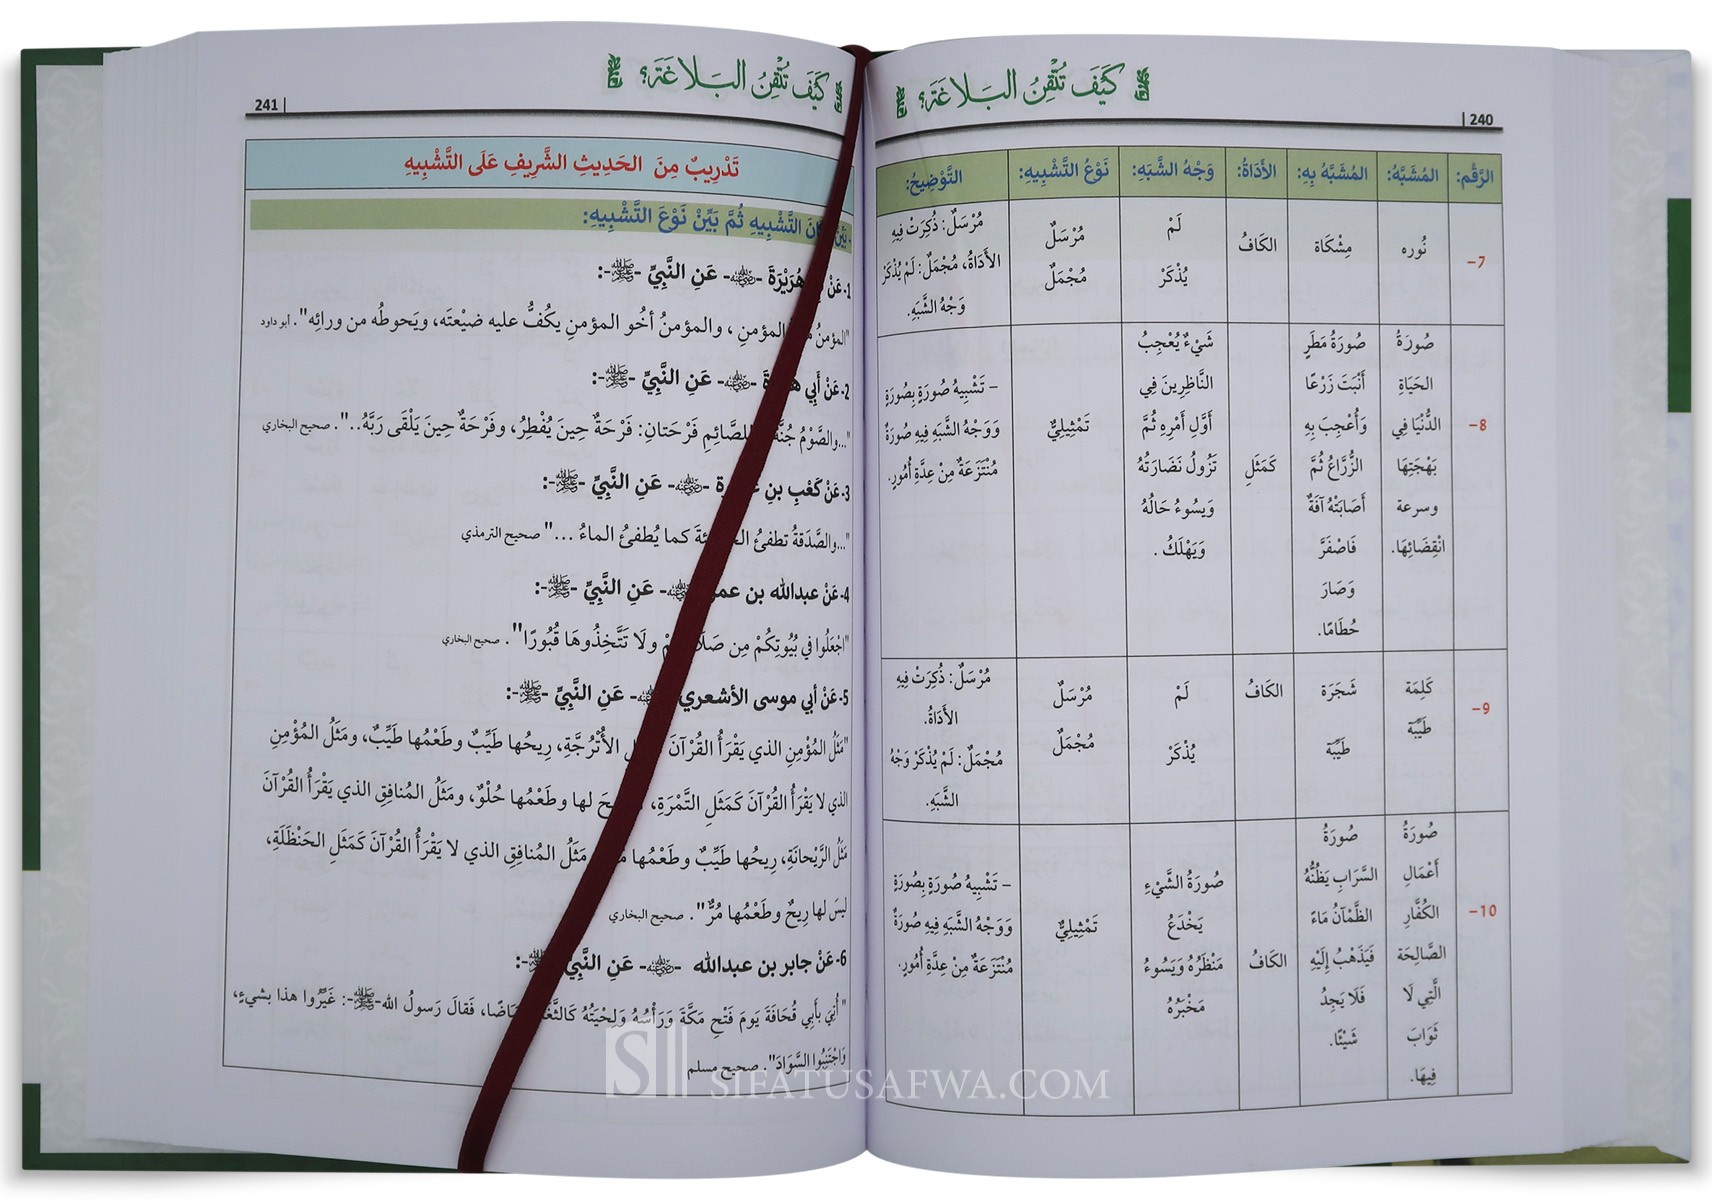 كَيْفَ تُتْقِنُ البَلَاغَةَ؟
240
الرَّقْم: المُشَبَّهُ: المُشَبَّهُ بِهِ: الأَدَاةُ: وَجْهُ الشَّبَهِ: نَوْعُ التَّشْبِيهِ: التَّوْضِيحُ:
7-
نُوره
مِشْكَاة
الكَافُ
لَمْ
يُذْكَرْ
مُرْسَلٌ
مُجْمَلٌ
مُرْسَلٌ: ذُكِرَتْ فِيهِ
الأَدَاةُ، مُجْمَلٌ: لَمْ يُذْكَرْ
وَجْهُ الشَّبَهِ.
8-
صُورَةُ
الحَيَاةِ
الدُّنْيَا فِي
بَهْجَتِهَا
وسرعة
انْقِضَائِهَا.
صُورَةُ مَطَرٍ
أَنْبَتَ زَرْعًا
وَأُعْجِبَ بِهِ
الزُّرَّاعُ ثُمَّ
أَصَابَتْهُ آفَةٌ
فَاصْفَرَّ
وَصَارَ
حُطَامًا.
كَمَثَلِ
شَيْءٌ يُعْجِبُ
النَّاظِرِينَ فِي
أَوَّلِ أَمْرِهِ ثُمَّ
تَزُولُ نَضَارَتُهُ
وَيَسُوءُ حَالُهُ
وَيَهْلَكُ .
تَمْثِيلِيٌّ
– تَشْبِيهُ صُورَةٍ بِصُورَةٍ
وَوَجْهُ الشَّبَهِ فِيهِ صُورَةٌ
مُنْتَزَعَةٌ مِنْ عِدَّةِ أُمُورٍ.
9-
كَلِمَة
طَيِّبَة
شَجَرَة
طَيِّبَة
الكَافُ
لَمْ
يُذْكَرْ
مُرْسَلٌ
مُجْمَلٌ
مُرْسَلٌ: ذُكِرَتْ فِيهِ
الأَدَاةُ.
مُجْمَلٌ: لَمْ يُذْكَرْ وَجْهُ
الشَّبَهِ.
10-
صُورَةُ
أَعْمَالِ
الكُفَّارِ
الصَّالِحَة
الَّتِي لَا
ثَوَابَ
فِيهَا.
صُورَةُ
السَّرَابِ يَظُنُّهُ
الظَّمْآنُ مَاءً
فَيَذْهَبُ إِلَيْهِ
فَلَا يَجِدُ
شَيْئًا.
الكَافُ
صُورَةُ الشَّيْءِ
يَخْدَعُ
مَنْظَرُهُ وَيَسُوءُ
مَخْبَرُهُ
تَمْثِيلِيٌّ
– تَشْبِيهُ صُورَةٍ بِصُورَةٍ
وَوَجْهُ الشَّبَهِ فِيهِ صُورَةٌ
مُنْتَزَعَةٌ مِنْ عِدَّةِ أُمُورٍ.
كَيْفَ تُتْقِنُ البَلَاغَةَ؟
241
تَدْرِيبٌ مِنَ الحَدِيثِ الشَّرِيفِ عَلَى التَّشْبِيهِ
بَيِّنْ التَّشْبِيهِ ثُمَّ بَيِّنْ نَوْعَ التَّشْبِيهِ:
1- عَنْ هُرَيْرَةَ -رضي الله عنه- عَنِ النَّبِيِّ -ﷺ-:
"المؤمنُ المؤمنِ ، والمؤمنُ أخُو المؤمنِ يكفُّ عليه ضيْعتَه، ويَحوطُه من ورائِه". أبو داود
2- عَنْ أَبِي -رضي الله عنه- عَنِ النَّبِيِّ -ﷺ-:
"...والصَّوْمُ جُنَّةٌ للصَّائِمِ فَرْحَتانِ: فَرْحَةٌ حِينَ يُفْطِرُ، وفَرْحَةٌ حِينَ يَلْقَى رَبَّهُ..". صحيح البخاري
3- عَنْ كَعْبِ بنِ -رضي الله عنه- عَنِ النَّبِيِّ -ﷺ-:
"...والصَّدَقةُ تطفئُ كما يُطفئُ الماءُ ..." صحيح الترمذي
4- عَنْ عبدالله بن -رضي الله عنه- عَنِ النَّبِيِّ -ﷺ-:
"اجْعَلُوا في بُيُوتِكُمْ مِن ولَا تَتَّخِذُوهَا قُبُورًا". صحيح البخاري
5- عَنْ أبي موسى الأشعري -رضي الله عنه- عَنِ النَّبِيِّ -ﷺ-:
"مَثَلُ المُؤْمِنِ الذي يَقْرَأُ القُرْآنَ الأُتْرُجَّةِ، رِيحُها طَيِّبٌ وطَعْمُها طَيِّبٌ، ومَثَلُ المُؤْمِنِ
الذي لا يَقْرَأُ القُرْآنَ كَمَثَلِ التَّمْرَةِ، لها وطَعْمُها حُلْوٌ، ومَثَلُ المُنافِقِ الذي يَقْرَأُ القُرْآنَ
مَثَلُ الرَّيْحانَةِ، رِيحُها طَيِّبٌ وطَعْمُها مَثَلُ المُنافِقِ الذي لا يَقْرَأُ القُرْآنَ كَمَثَلِ الحَنْظَلَةِ،
ليسَ لها رِيحٌ وطَعْمُها مُرٌّ". صحيح البخاري
6- عَنْ جابر بن عبدالله -رضي الله عنه- عَنِ -ﷺ-:
" أُتِيَ بأَبِي قُحَافَةَ يَومَ فَتْحِ مَكَّةَ وَرَأْسُهُ وَلِحْيَتُهُ فَقالَ رَسولُ الله-ﷺ-: غَيِّرُوا هذا بشيءٍ،
وَاجْتَنِبُوا السَّوَادَ". صحيح مسلم
SIFATUSAFWA.COM